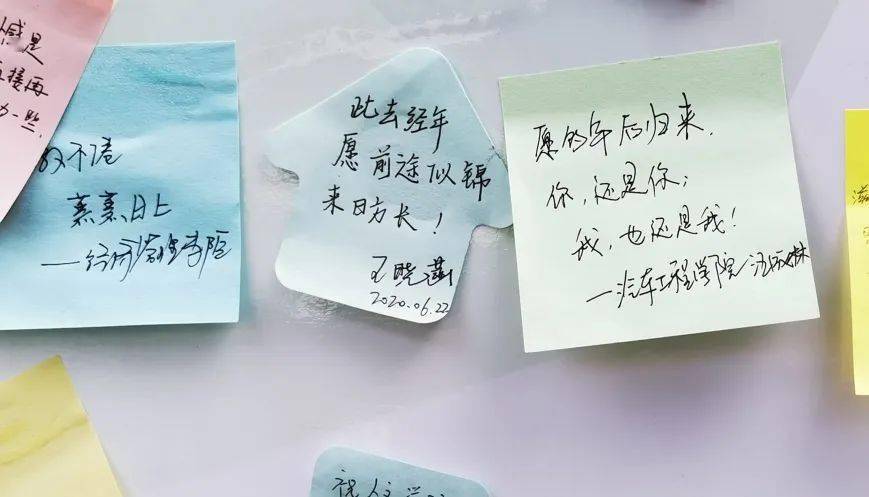 感是
接再
一些
不语
蒸蒸日上
—经济管理学院
此去经年
愿前途似锦
来日方长！
王晓
2020.06.22
愿多年后归来，
你，还是你；
我，也还是我！
—汽车工程学院汪
祝